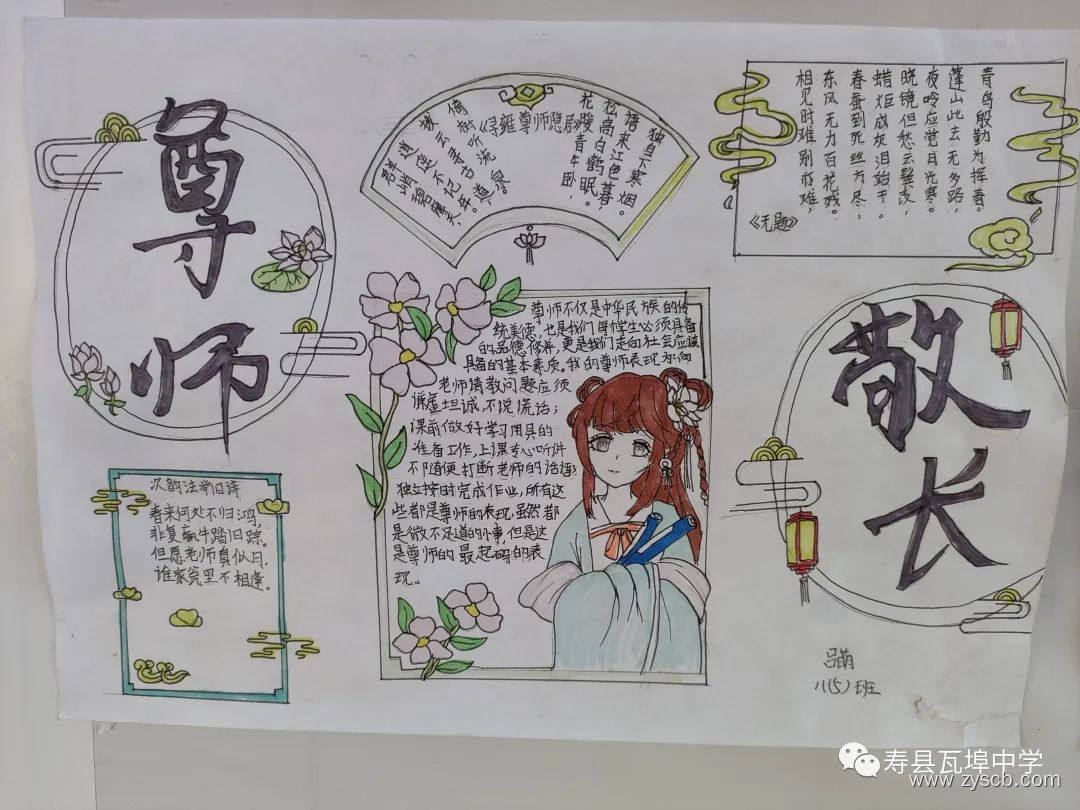 尊
师
《寻雍尊师隐居》
群峭碧摩天,
逍遥不记年。
拨云寻古道,
倚树听流泉。
花暖青牛卧,
松高白鹤眠。
塘来江色暮,
独自下寒烟。
《无题》
相见时难别亦难,
东风无力百花残。
春蚕到死丝方尽;
蜡炬成灰泪始干。
晓镜但愁云鬓改,
夜吟应觉月光寒。
蓬山此去无多路,
青鸟殷勤为
次韵法华旧诗
春来何处不归鸿,
非复羸牛踏旧踪。
但愿老师真似月,
谁家瓮里不相逢。
尊师不仅是中华民族的传
统美德,也是我们每个学生必须具备
的品德修养,更是我们走向社会应该
具备的基本素质,我的尊师表现为向
老师请教问题应须
谦虚坦诚,不说谎话;
课前做好学习用具的
准备工作,上课专心听讲
不随便打断老师的话语;
独立按时完成作业,所有这
些都是尊师的表现,虽然都
是微不足道的小事,但是这
是尊师的最起码的表
现。
敬
长
吕萌
八(5)班
寿县瓦埠中学
www.zyscb.com